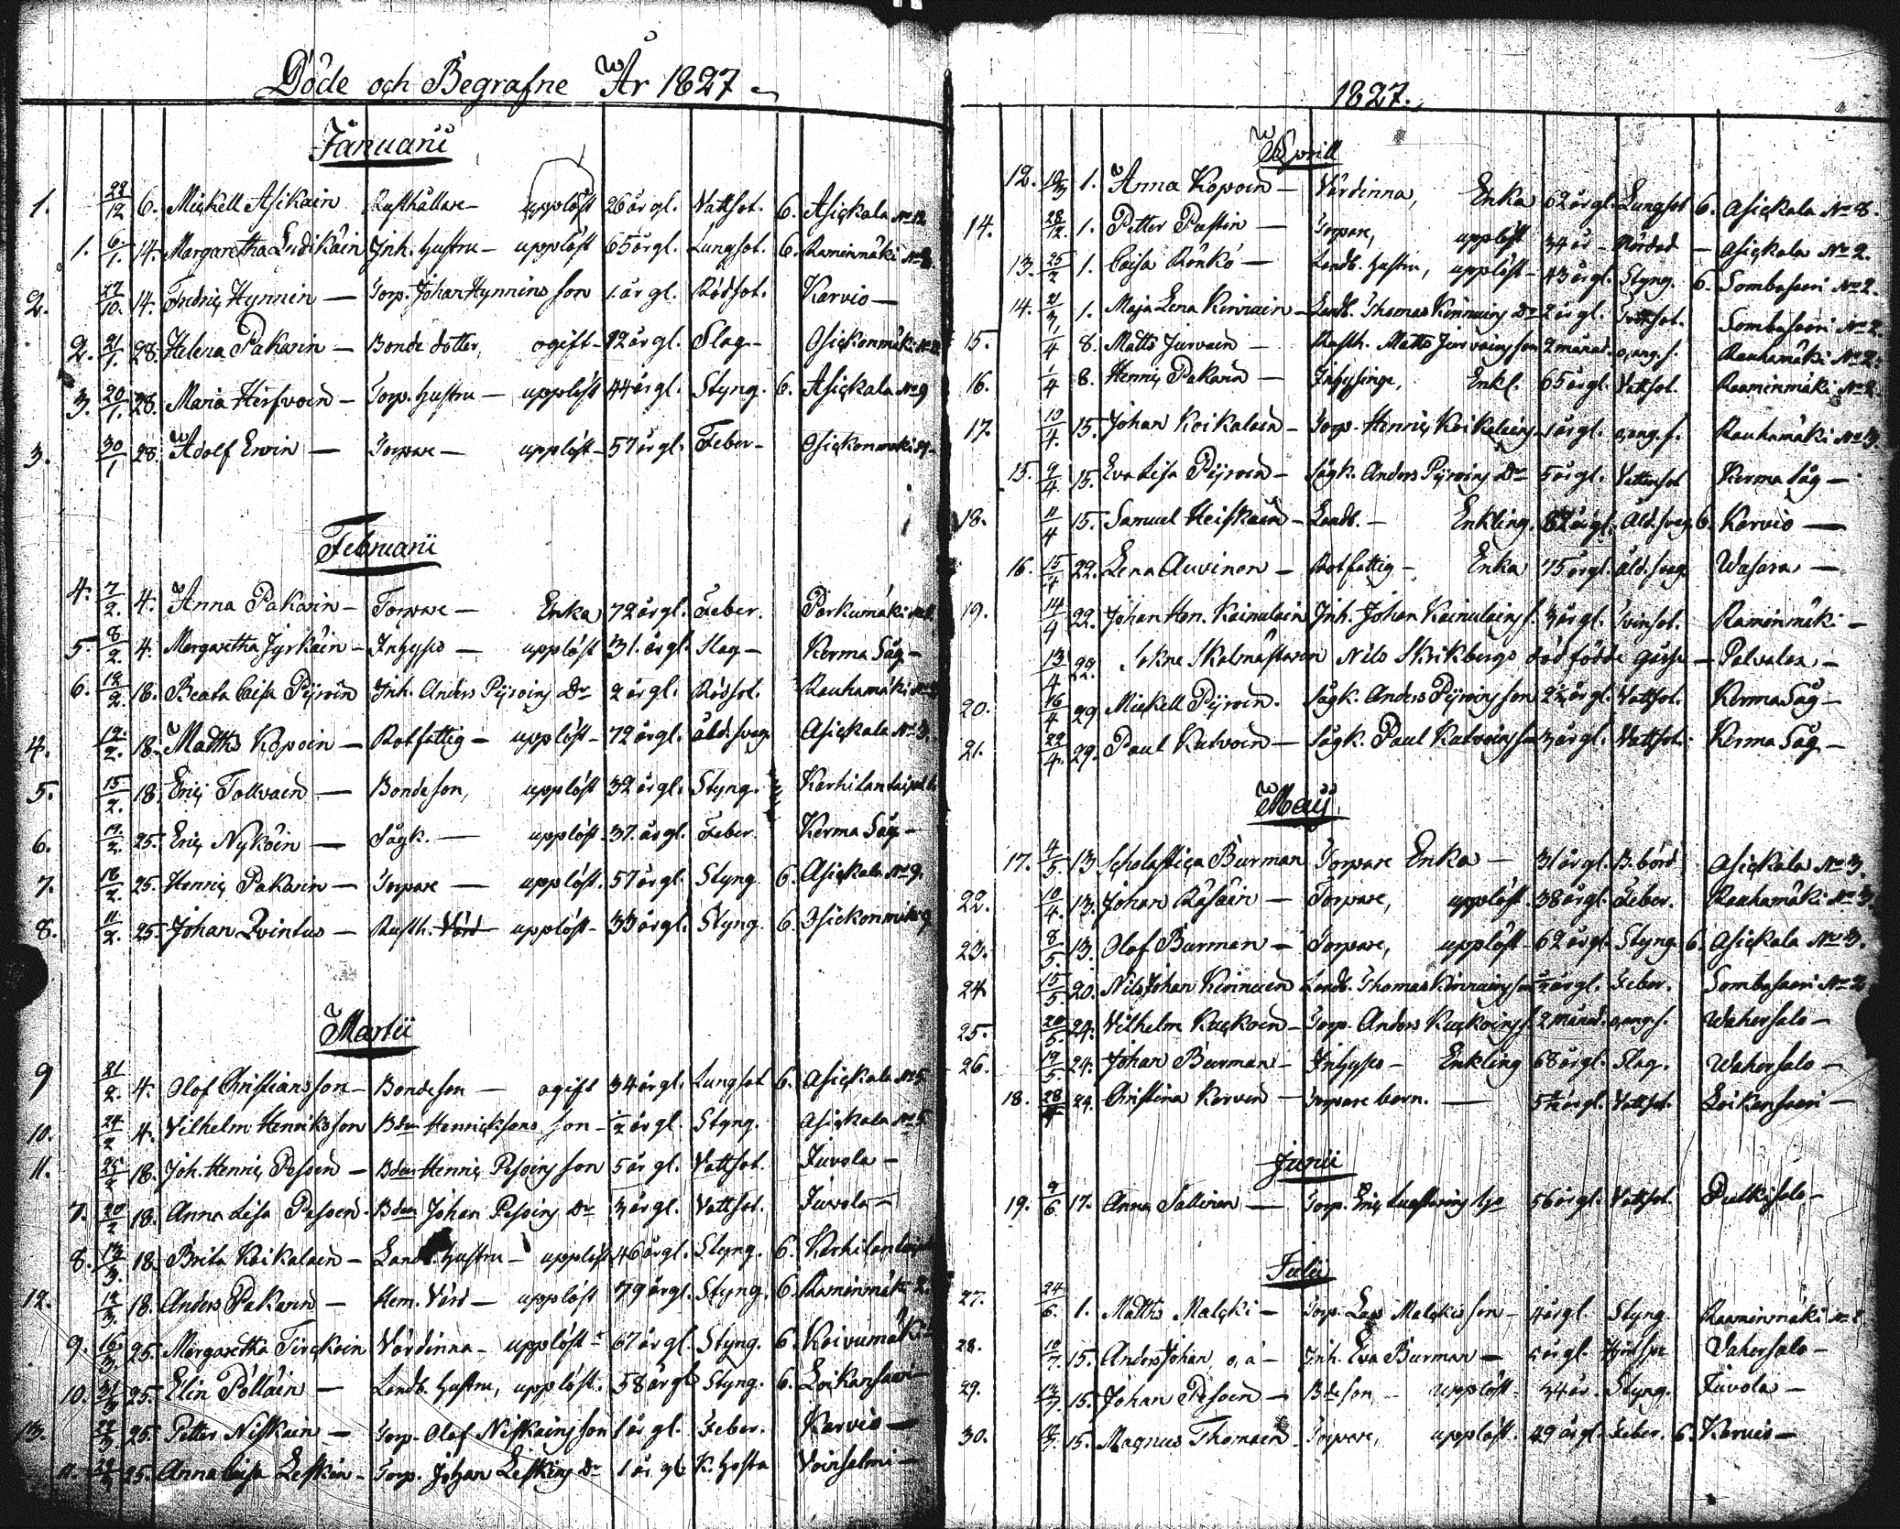 Döde och Begrafne År 1827
Januarii
1. 22/12 6. Mickell Asikain Rusthållare upplöst 26 år gl. Vattsot. 6. Asickala No 12
1. 6/1. 14. Margaretha Inh. Hustru upplöst 65 år gl. Lungsot. 6. Raminmäki
2. /10. 14. Fredric Hynnin Torp. Johan Hynnins son 1. år gl. Rödsot. Karvio
2. 21/1. 28. Helena Pakarin Bonde dotter, ogift 12 år gl. Slag Osickonmäki
3. 20/1. 28. Maria Hirfvoin Torp. Hustru upplöst 44 år gl. Styng. 6. Asickala No 9
3. 30/1 28. Adolf Ervin Torpare upplöst 57 år gl. Feber Osickonmäki
Februarii
4. 7/2. 4. Anna Pakarin Torpare Enka 72 år gl. Feber. Porkumäki
5. 8/2. 4. Margaretha Jyrkäin Inhyses upplöst 31. år gl. Slag Kerma Såg
6. 12/2. 18. Beata Caisa Pijroin Inh. Anders Pijroins Dr 2 år gl. Rödsot. Rauhamäki
4. 12/2. 18. Matths Kopoin Rotfattig upplöst 72 år gl. åld. svag. Asickala No 3.
5. 15/2. 18. Eric Tollvain Bondeson, upplöst 32 år gl. Styng.
6. /2. 25. Eric Nykäin Sågk. upplöst 37. år gl. Feber. Kerma Såg
7. 16/2. 25. Henric Pakarin Torpare upplöst. 57 år gl. Styng 6. Asickala No 9.
8. 11/2. 25. Johan Qvintus Rusth. upplöst 33 år gl. Styng. 6 Osickonmäki 9
Martii
9 21/2. 4. Olof Christiansson Bondeson ogift 34 år gl. Lungsot 6. Asickala No 5
10. 24/2 4. Vilhelm Henriksson Bden Henricksons son 1/2 år gl. Styng. Asickala No 5
11. 25/2 18. Joh. Henric Pesoin Bden Henric Pesoins son 5 år gl. Vattsot. Juvola
7. 20/2 18. Anna Lisa Pesoin Bden Johan Pesoins Dr 3 år gl. Vattsot. Juvola
8. 13/3. 18. Brita Koikalain Hustru upplöst 46 år gl. Styng. 6.
12. 12/3. 18. Anders Pakarin Hem. Värd upplöst 79 år gl. Styng. 6. Raminmäki 2.
9. 16/3. 25. Margaretha Tirckoin Värdinna upplöst 67 år gl. Styng. 6. Koivumäki
10. 25. Elin Pölläin Landb. Hustru, upplöst. 58 år gl. Styng. 6. Loikansaari
13. 22/3. 25. Petter Niskain Torp. Olof Niskains son 1 år gl. Feber. Karvio
11. 25. Anna Caisa Leskin Torp. Johan Leskins Dr 1 år gl. K. hosta Voinsalmi
1827.
Aprill
12. 1. Anna Kopoin Värdinna, Enka 62 år gl. Lungsot 6. Asickala No 8.
14. 28/12. 1. Petter Pastin Torpare, upplöst 34 år Mördad Asickala No 2.
13. 25/2 1. Caisa Rönkö Landb. Hustru, upplöst 43 år gl. Styng. 6. Sombasaari No 2.
14. 21/3. 1. Maja Lena Kinnuin Landb. Thomas Kinnuins Dr 2 år gl. Sombasaari No 2.
15. /4 8. Matts Jurvain Rusth. Matts Jurvains son 2 månad. o, ang. s. Rauhamäki No 2.
16. 1/4 8. Henric Pakarin Inhysinge, Enkl. 65 år gl. Vattsot. Raaminmäki No 2.
17. 10/4. 15. Johan Koikalain Torp. Henric Koikalains 1 år gl. o, ang. s. Rauhamäki No 3.
15. 9/4. 15. Eva Lisa Pijroin Sågk. Anders Pijroins Dr 5 år gl. Vattensot Kerma Såg
18. 11/4 15. Samuel Heiskain Landb. Enkling. 82 år gl. Åld. svag 6. Karvio
16. 15/4 22. Lena Auvinen Rotfattig Enka 75 år gl. åld. svag Wasara
19. 14/4 22. Johan Hen. Kainulain Inh. Johan Kainulains s. 3 år gl. Raminmäki
13/4 22. Sokne Skolmästaren Nils Skrikbergs död födde gosse Palvalax
20. 16/4 29 Mickell Pijroin. Sågk. Anders Pijroins son 2 1/2 år gl. Vattsot. Kerma Såg
21. 22/4. 29. Paul Kutvoin Sågk. Paul Kutvoins son 3 år gl. Vattsot. Kerma Såg
Maij
17. 4/5. 13 Scholastica Burman Torpare Enka 31 år gl. B. börd Asickala No 3.
22. 10/4. 13. Johan Räsäin Torpare, upplöst. 38 år gl. Feber. Rauhamäki No 3.
23. 8/5. 13. Olof Burman Torpare, upplöst 62 år gl. Styng 6. Asickala No 3.
24 15/5 20. Nils Johan Kinnuin Landb. Thomas Kinnuins son 1/2 år gl. Feber. Sombasaari No 2
25. 20/5. 24. Vilhelm Kuckoin Torp. Anders Kuckoins s. 2 månad. o, ang. s. Wahersalo
26. 19/5. 24. Johan Burman Inhyses Enkling 68 år gl. Slag. Wahersalo
18. 24. Christina Karvin Torpare barn. 5 1/2 år gl. Vattsot. Loikansaari
Junii
19. 9/6. 17. Anna Sallinen Torp. Eric 56 år gl. Vattsot. Pulkisalo
Julii
27. 24/6. 1. Matths Malcki Torp. Lars Malckis son 4 år gl. Styng. Raaminmäki
28. 10/7. 15. Anders Johan, o, ä Inh. Eva Burman år gl. Vahersalo
29. 13/7. 15. Johan Pesoin Bde son upplöst 34 år. Styng. Juvola
30. 15. Magnus Thomain Torpare, upplöst. 29 år gl. Feber. 6. Karvio